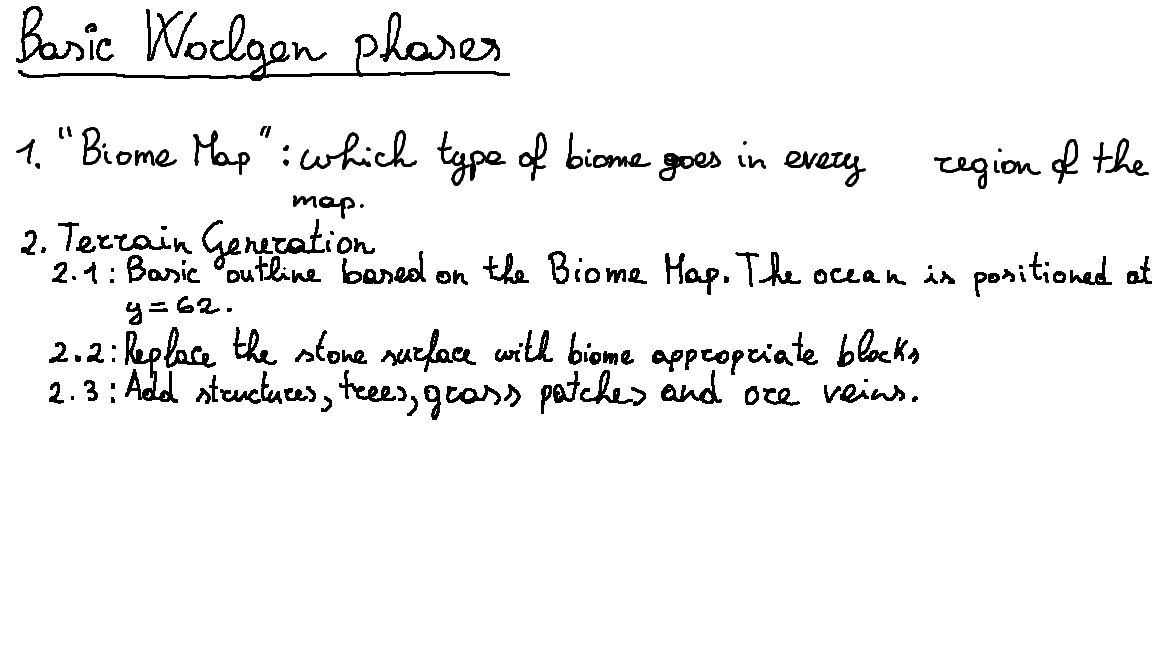 Basic Worlgen phases
1. "Biome Map": which type of biome goes in every region of the
map.
2. Terrain Generation
2.1: Basic outline based on the Biome Map. The ocean is positioned at
y=62.
2.2: Replace the stone surface with biome appropriate blocks
2.3: Add structures, trees, grass patches and ore veins.